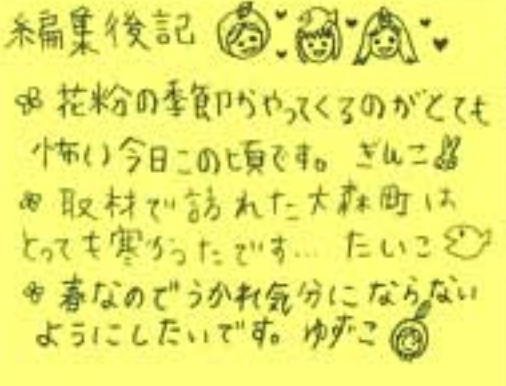 編集後記
花粉の季節がやってくるのがとても
怖い今日この頃です。 ぎんこ
取材で訪れた大森町は
とっても寒かったです… たいこ
春なのでうかれ気分にならない
ようにしたいです。 ゆずこ